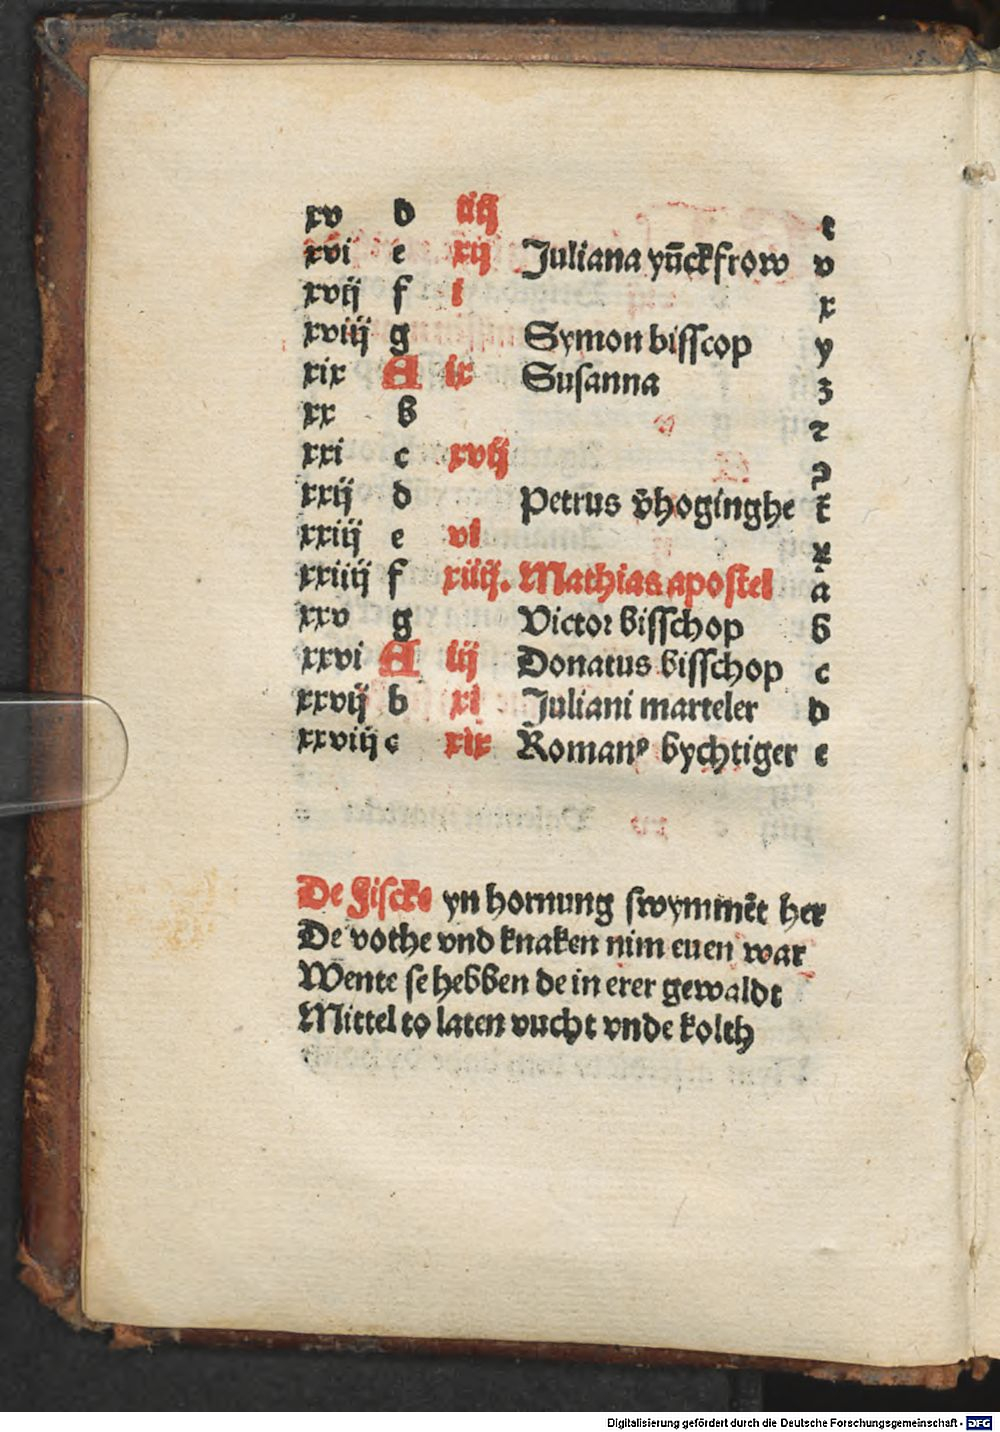 xv d iiij t
xvi e xij Juliana yūckfrow v
xvij f i x
xviij g Symon bisscop y
xix A ix Susanna z
xx b ꝛ
xxi c xvij ꝯ
xxij d Petrus v̄hoginghe
xxiij e vi
xxiiij f xiiij. Mathias apostel a
xxv g Victoꝛ bisschop b
xxvi A iij Donatus bisschop c
xxvij b xi Juliani marteler d
xxviij c xix Romanꝰ bychtiger e
De Fiscke yn hornung swymmēt her
De vothe vnd knaken nim euen war
Wente se hebben de in erer gewaldt
Mittel to laten vucht vnde kolth
Digitalisierung gefördert durch die Deutsche Forschungsgemeinschaft - DFG